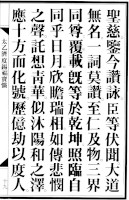 聖慈鑒今讚詠臣等伏聞大道
無名一詞莫讚至仁及物三界
同尊覆載既等於乾坤照臨自
同乎日月欣瞻瑞相如傳悲憫
之聲託想青華似沐陽和之澤
應十方而化號歷億劫以度人
太乙濟度錫福寶懺